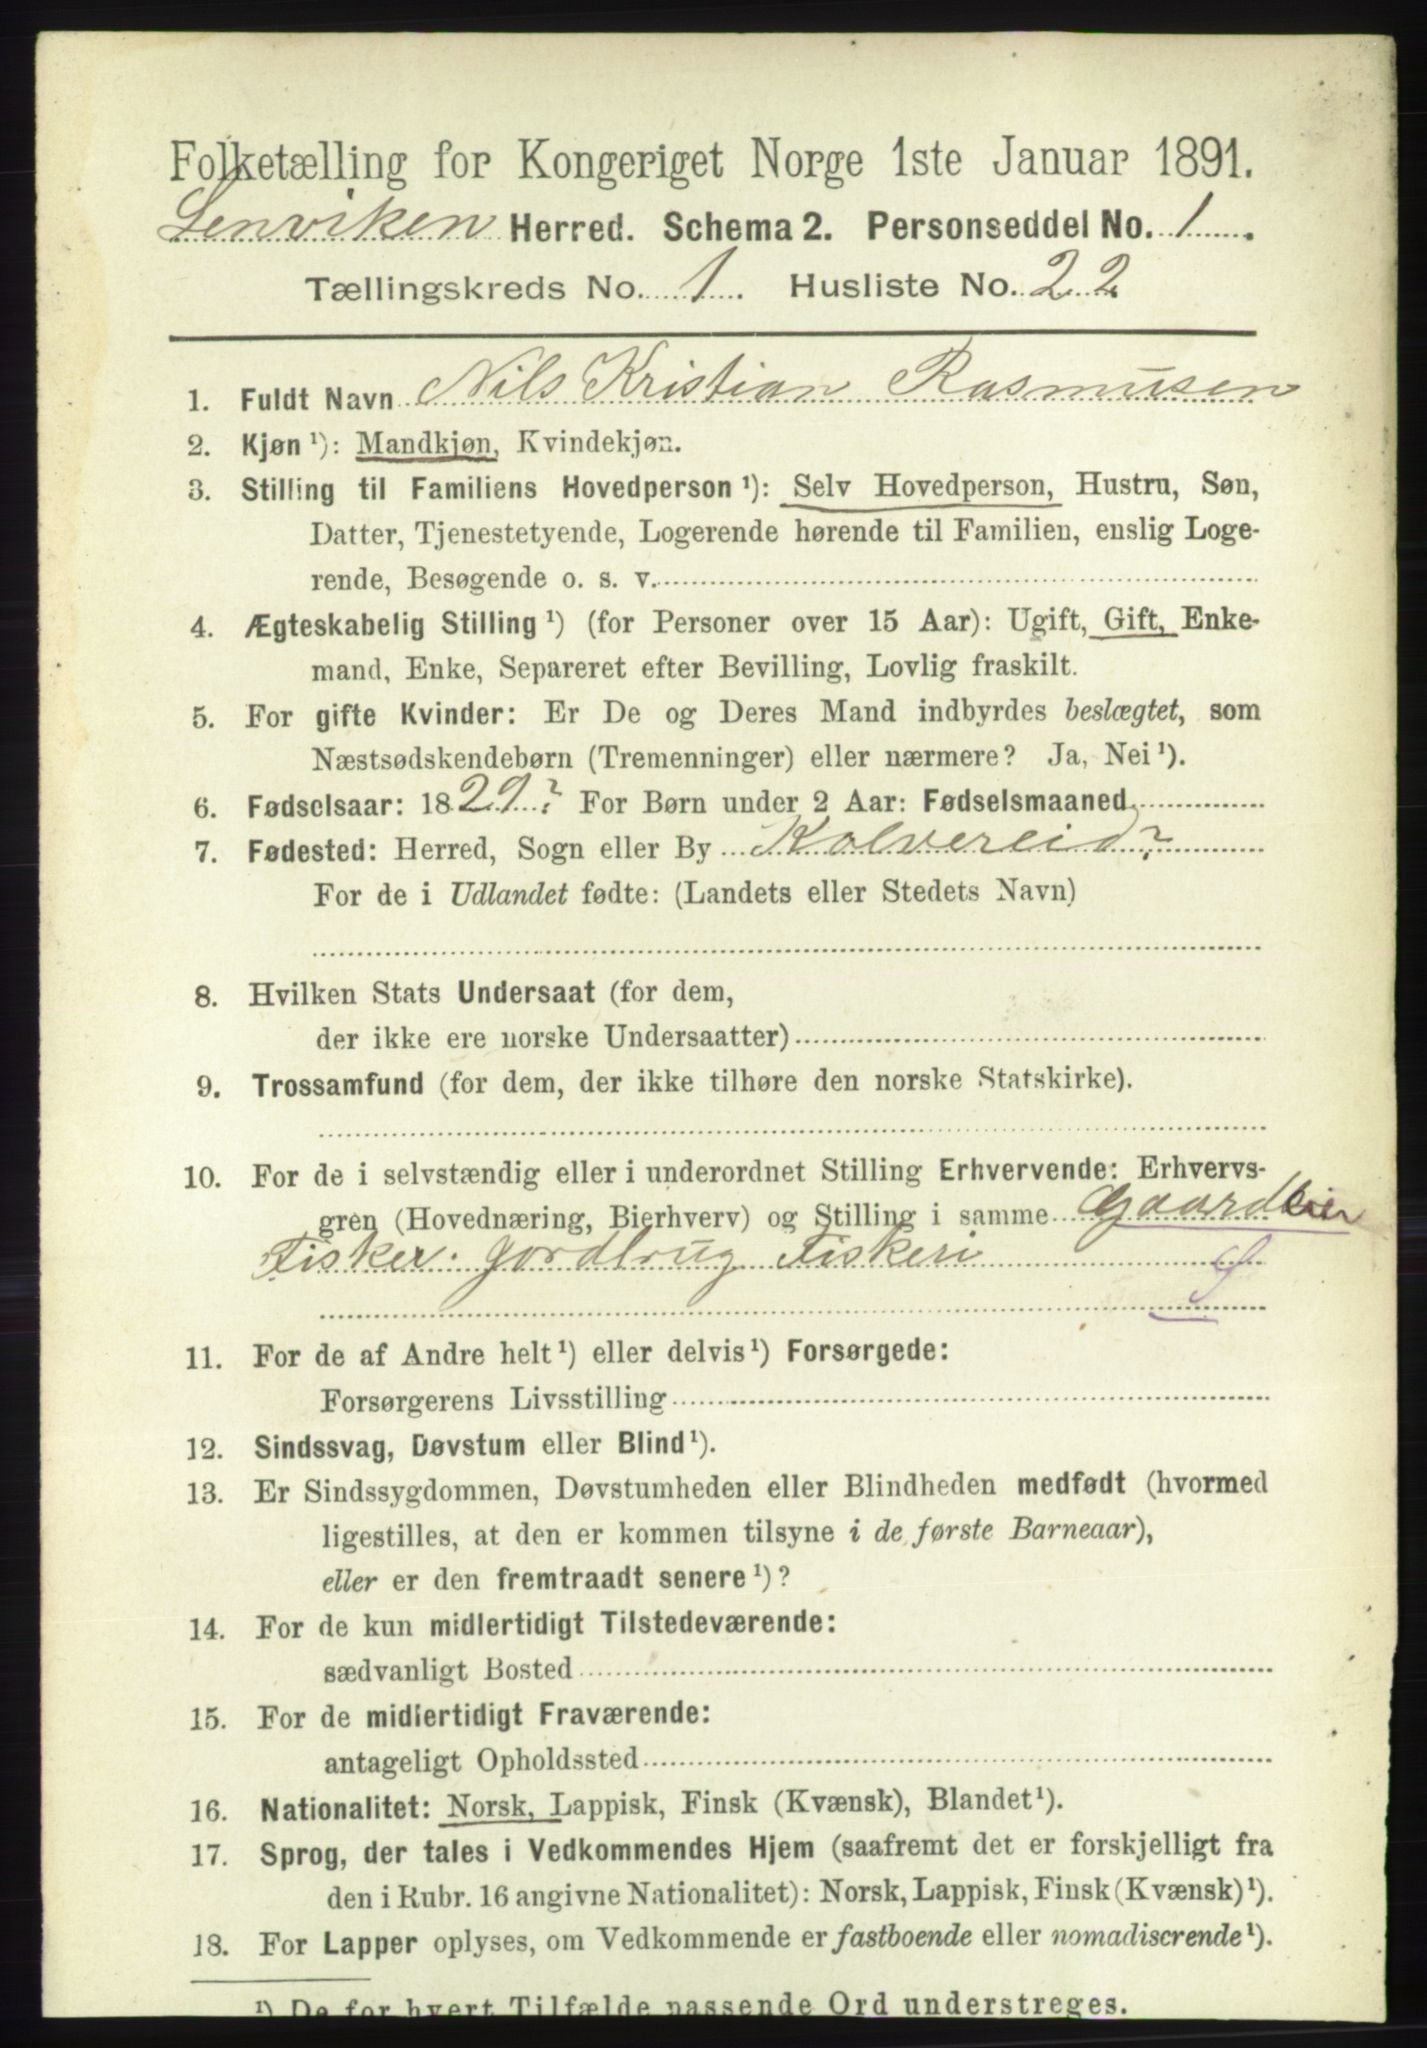 Folketælling for Kongeriget Norge 1ste Januar 1891.
Lenviken Herred. Schema 2. Personseddel No. 1.
Tællingskreds No. 1. Husliste No. 22
1. Fuldt Navn Nils Kristian Rasmusen
2. Kjøn ¹): Mandkjøn, Kvindekjøn.
3. Stilling til Familiens Hovedperson ¹): Selv Hovedperson, Hustru, Søn,
Datter, Tjenestetyende, Logerende hørende til Familien, enslig Loge-
rende, Besøgende o. s. v.
4. Ægteskabelig Stilling ¹) (for Personer over 15 Aar): Ugift, Gift, Enke-
mand, Enke, Separeret efter Bevilling, Lovlig fraskilt.
5. For gifte Kvinder: Er De og Deres Mand indbyrdes beslægtet, som
Næstsødskendebørn (Tremenninger) eller nærmere? Ja, Nei ¹).
6. Fødselsaar: 1829? For Børn under 2 Aar: Fødselsmaaned
7. Fødested: Herred, Sogn eller By Kolvereid?
For de i Udlandet fødte: (Landets eller Stedets Navn)
8. Hvilken Stats Undersaat (for dem,
der ikke ere norske Undersaatter)
9. Trossamfund (for dem, der ikke tilhøre den norske Statskirke).
10. For de i selvstændig eller i underordnet Stilling Erhvervende: Erhvervs-
gren (Hovednæring, Bierhverv) og Stilling i samme Gaardeier
Fisker. Jordbrug Fiskeri
11. For de af Andre helt ¹) eller delvis ¹) Forsørgede:
Forsørgerens Livsstilling
12. Sindssvag, Døvstum eller Blind ¹).
13. Er Sindssygdommen, Døvstumheden eller Blindheden medfødt (hvormed
ligestilles, at den er kommen tilsyne i de første Barneaar),
eller er den fremtraadt senere ¹)?
14. For de kun midlertidigt Tilstedeværende:
sædvanligt Bosted
15. For de midlertidigt Fraværende:
antageligt Opholdssted
16. Nationalitet: Norsk, Lappisk, Finsk (Kvænsk), Blandet ¹).
17. Sprog, der tales i Vedkommendes Hjem (saafremt det er forskjelligt fra
den i Rubr. 16 angivne Nationalitet): Norsk, Lappisk, Finsk (Kvænsk) ¹).
18. For Lapper oplyses, om Vedkommende er fastboende eller nomadiserende ¹).
¹) De for hvert Tilfælde passende Ord understreges.